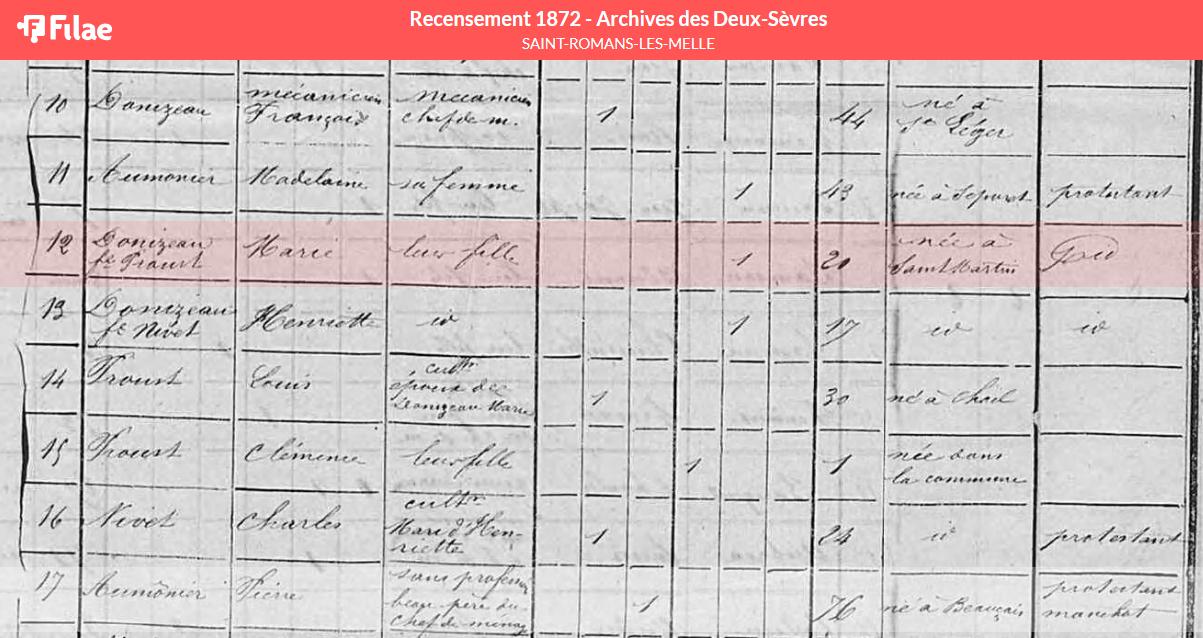 Filae
Recensement 1872 - Archives des Deux-Sèvres
SAINT-ROMANS-LES-MELLE
10 Donizeau mécanicien François mécanicien chef de m. 1 44 né à St Léger
11 Aumonier Madelaine sa femme 1 43 née à Sepvret protestant
12 Donizeau fe Proust Marie leur fille 1 20 née à Saint Martin
13 Donizeau fe Nivet Henriette id 1 17 id id
14 Proust Louis cultr époux de Donizeau Marie 1 30 né à Chail
15 Proust Clémence leur fille 1 1 née dans la commune
16 Nivet Charles cultr Mari d'Henriette 1 24 id protestant
17 Aumônier Pierre sans profession beau père du chef de ménag 1 76 né à Beauçais protestant manchot